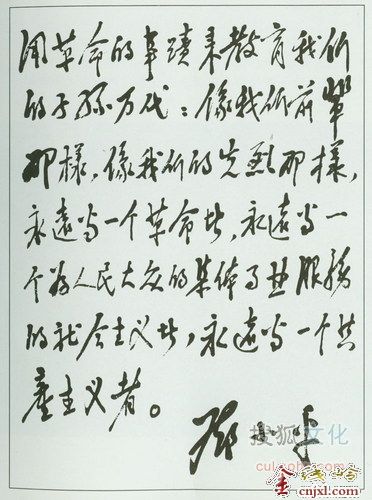 用革命的事蹟来教育我们
的子孙万代：像我们前辈
那樣，像我们的先烈那樣，
永遠当一个革命者，永遠当一
个为人民大众的集体事业服務
的社会主义者，永遠当一个共
產主义者。
邓小平
搜狐文化
cul.sohu.com
cnjxl.com